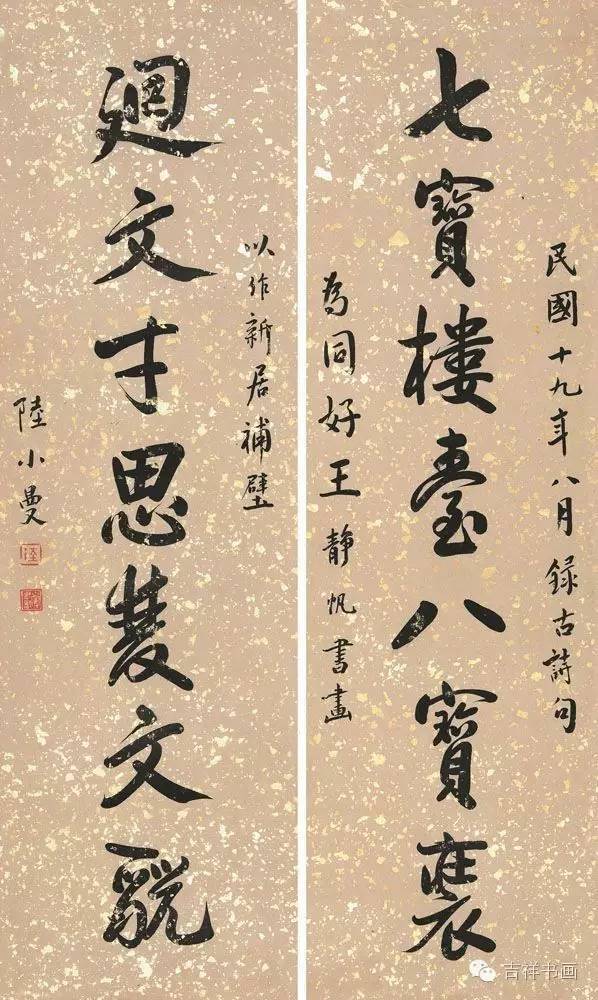 民國十九年八月録古詩句
七寶樓臺八寶裝
為同好王静帆書畫
以作新居補壁
廻文才思雙文貌
陸小曼
吉祥书画